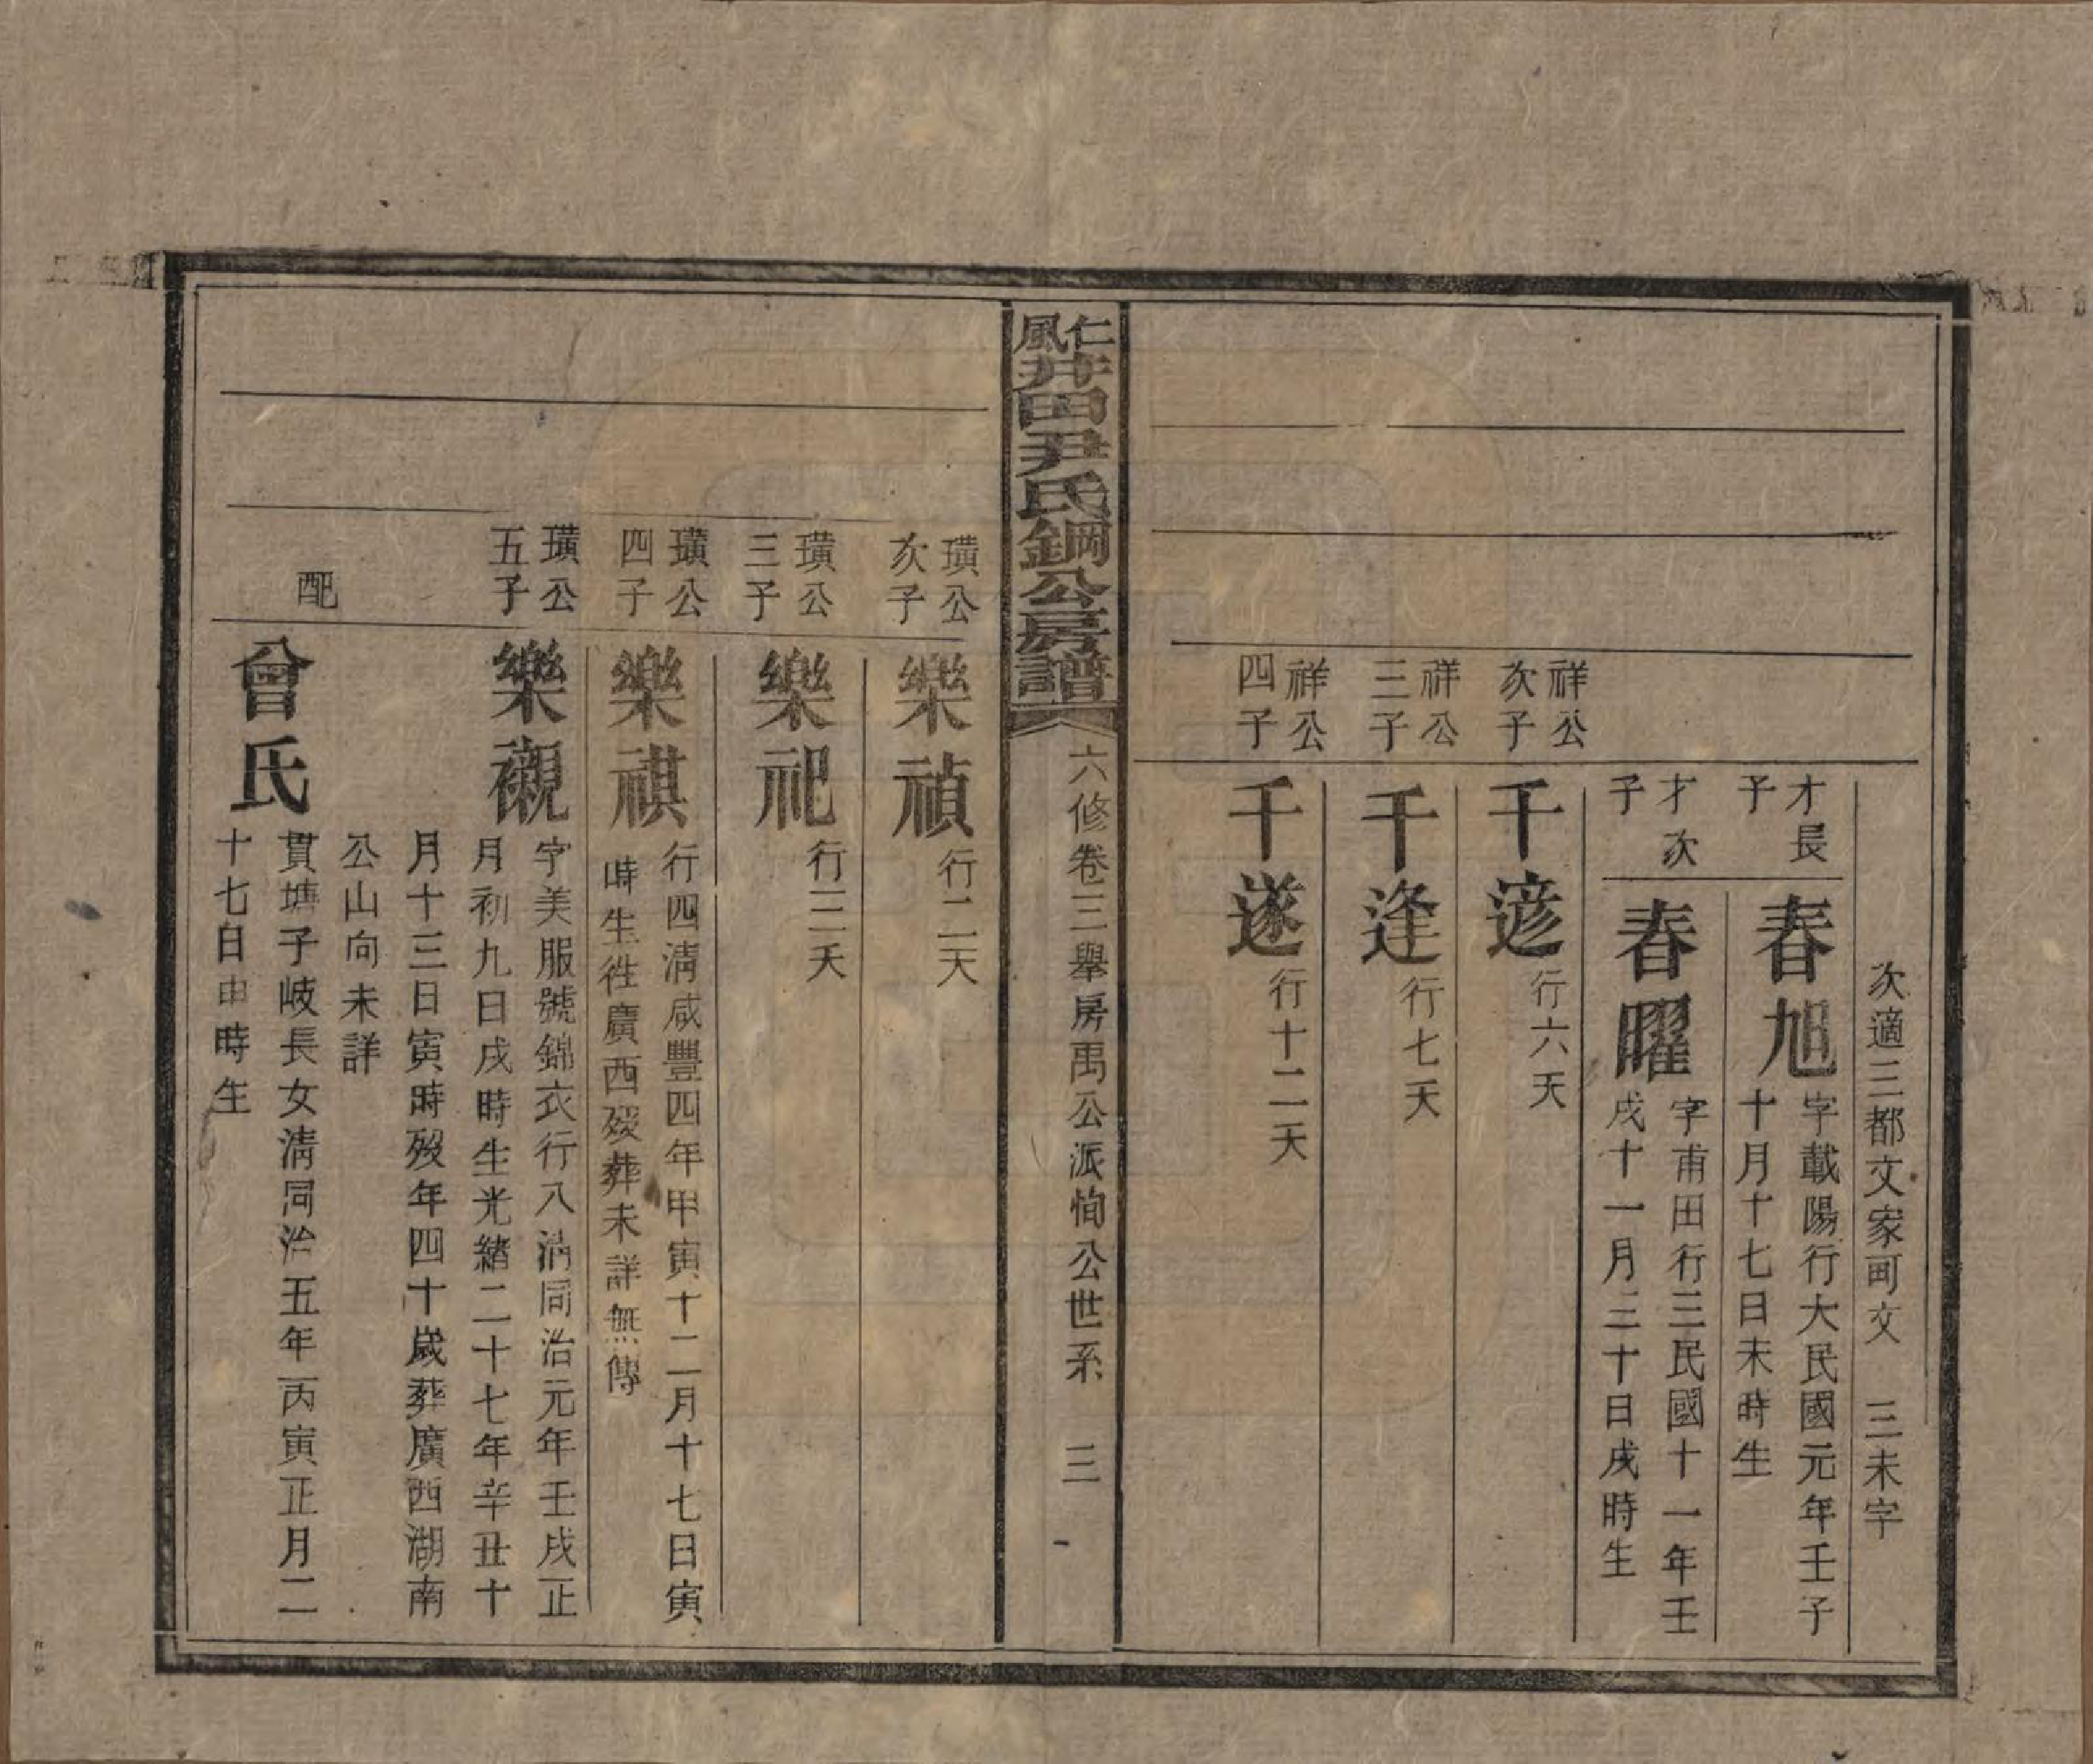 次適三都文家画文　三未字
才長
子
春旭
字載陽行大民國元年壬子
十月十七日未時生
才次
子
春曜
字甫田行三民國十一年壬
戌十一月三十日戌時生
祥公
次子
千遊
行六夭
祥公
三子
千逢
行七夭
祥公
四子
千遂
行十二夭
仁風井田尹氏鋼公房譜
六修卷三舉房禹公派恂公世系　三
璜公
次子
樂禎
行二夭
璜公
三子
樂祀
行三夭
璜公
四子
樂祺
行四清咸豐四年甲寅十二月十七日寅
時生徃廣西歿葬未詳無傳
璜公
五子
樂襯
字美服號錦衣行八清同治元年壬戌正
月初九日戌時生光緒二十七年辛丑十
月十三日寅時歿年四十歲葬廣西湖南
公山向未詳
配
曾氏
貫塘子岐長女清同治五年丙寅正月二
十七日申時生